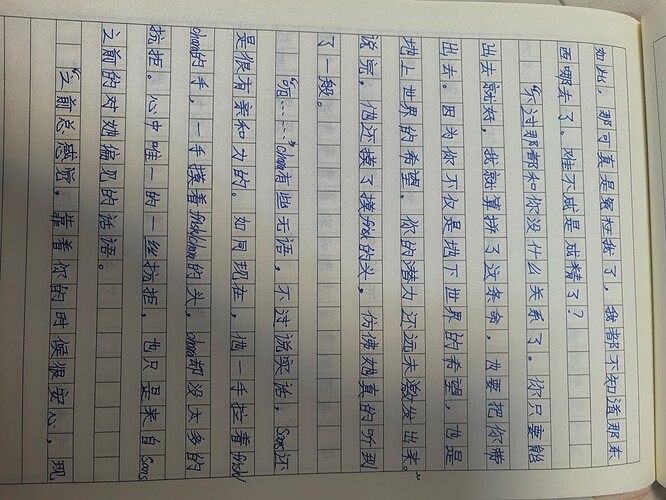 如炬，那可真是疑狂我了，我都不知道那东
西哪去了。难不成是成精了？
“不过那都和你没什么关系了。你只要能
出去就好，我就算拼了这条命，也要把你带
出去。因为你不仅是地下世界的希望，也是
地上世界的希望。你的潜力还远未激发出来。”
说完，他还摸了摸frisk的头，仿佛她真的听到
了一般。
“呃……”chara有些无语，不过说实话，Sans还
是很有亲和力的。如同现在，他一手拉着frisk/
chara的手，一手摸着frisk/chara的头，chara都没太多的
抗拒。心中唯一的一丝抗拒，也只是来自Sans
之前的对她偏见的话语。
“之前总感觉，靠着你的时候很安心，现